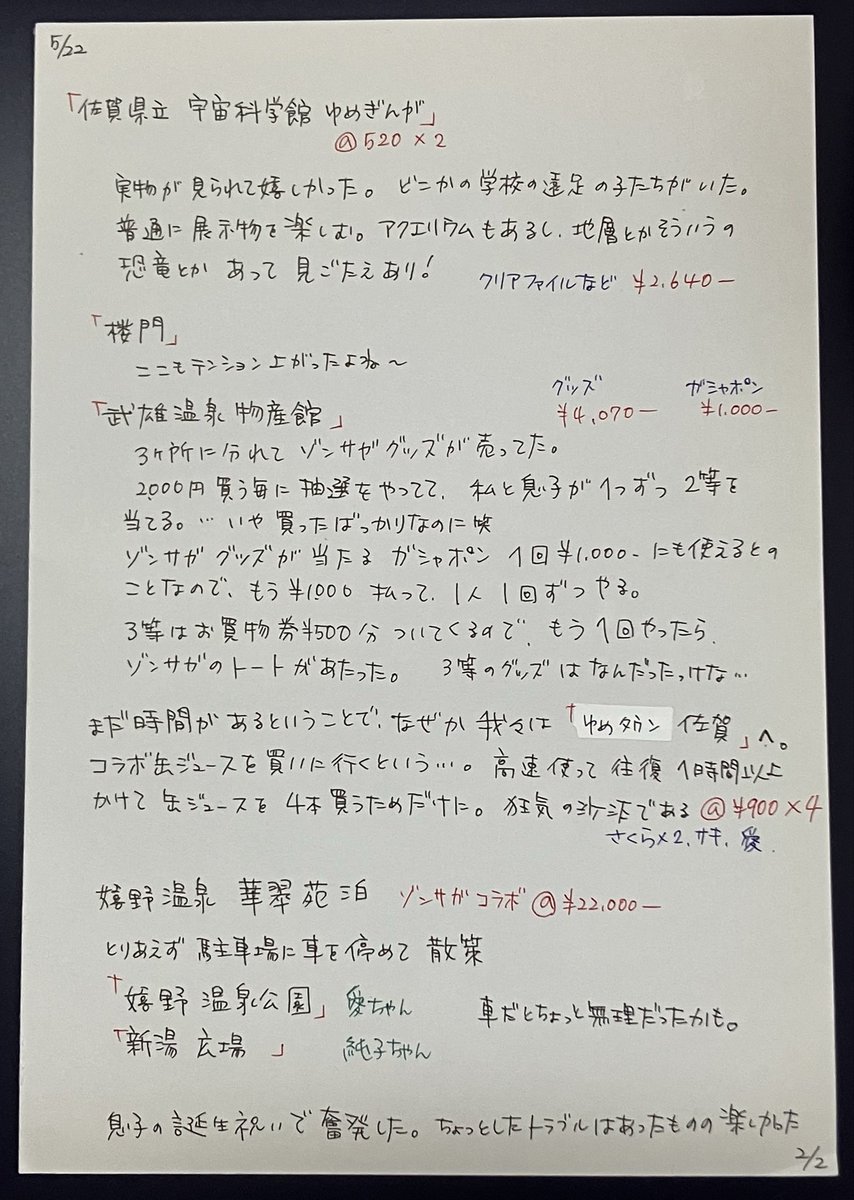 5/22
「佐賀県立 宇宙科学館 ゆめぎんが」
@520×2
実物が見られて嬉しかった。どこかの学校の遠足の子たちがいた。
普通に展示物を楽しむ。アクエリウムもあるし、地層とかそういうの
恐竜とか あって 見ごたえあり! クリアファイルなど ¥2,640ー
「楼門」
ここもテンション上がったよね〜
グッズ ガシャポン
「武雄温泉 物産館」 ¥4,070ー ¥1,000ー
3ヶ所に分れて ゾンサガグッズが売ってた。
2,000円買う毎に抽選をやってて、私と息子が1つずつ 2等を
当てる。…いや買ったばっかりなのに笑
ゾンサガ グッズが当たる ガシャポン 1回¥1,000-にも使えるとの
ことなので、もう¥1,000 払って、1人1回ずつやる。
3等はお買物券¥500分ついてくるので、もう1回やったら、
ゾンサガのトートがあたった。 3等のグッズはなんだったっけな…
まだ時間があるということで、なぜか我々は「ゆめタウン 佐賀」へ。
コラボ缶ジュースを買いに行くという…。高速使って往復1時間以上
かけて缶ジュースを4本買うためだけに。狂気の沙汰である @¥900×4
さくら×2、サキ、愛
嬉野温泉 華翠苑泊 ゾンサガコラボ @¥22,000ー
とりあえず 駐車場に車を停めて 散策
「嬉野温泉公園」 愛ちゃん 車だとちょっと無理だったかも。
「新湯広場 」 純子ちゃん
息子の誕生祝いで奮発した。ちょっとしたトラブルはあったものの楽しかった
2/2